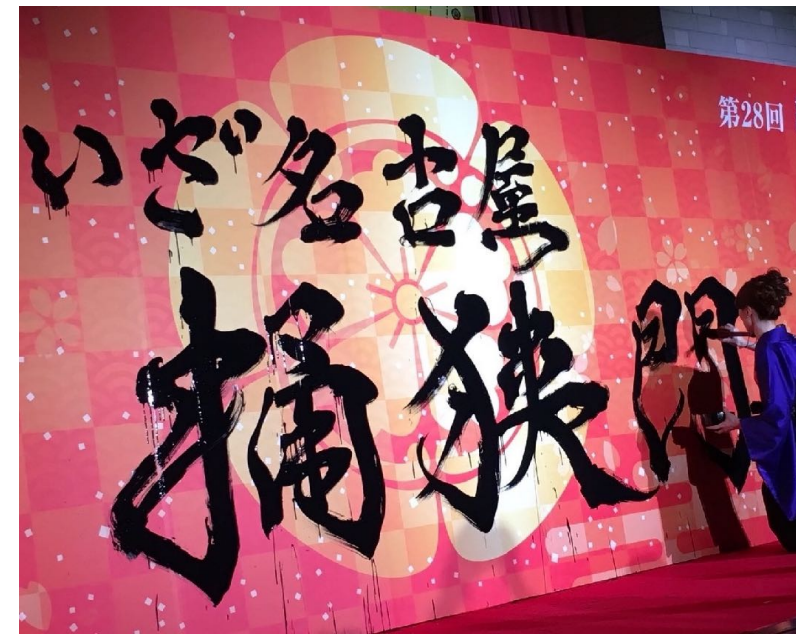 第28回
いざ名古屋
桶狭門